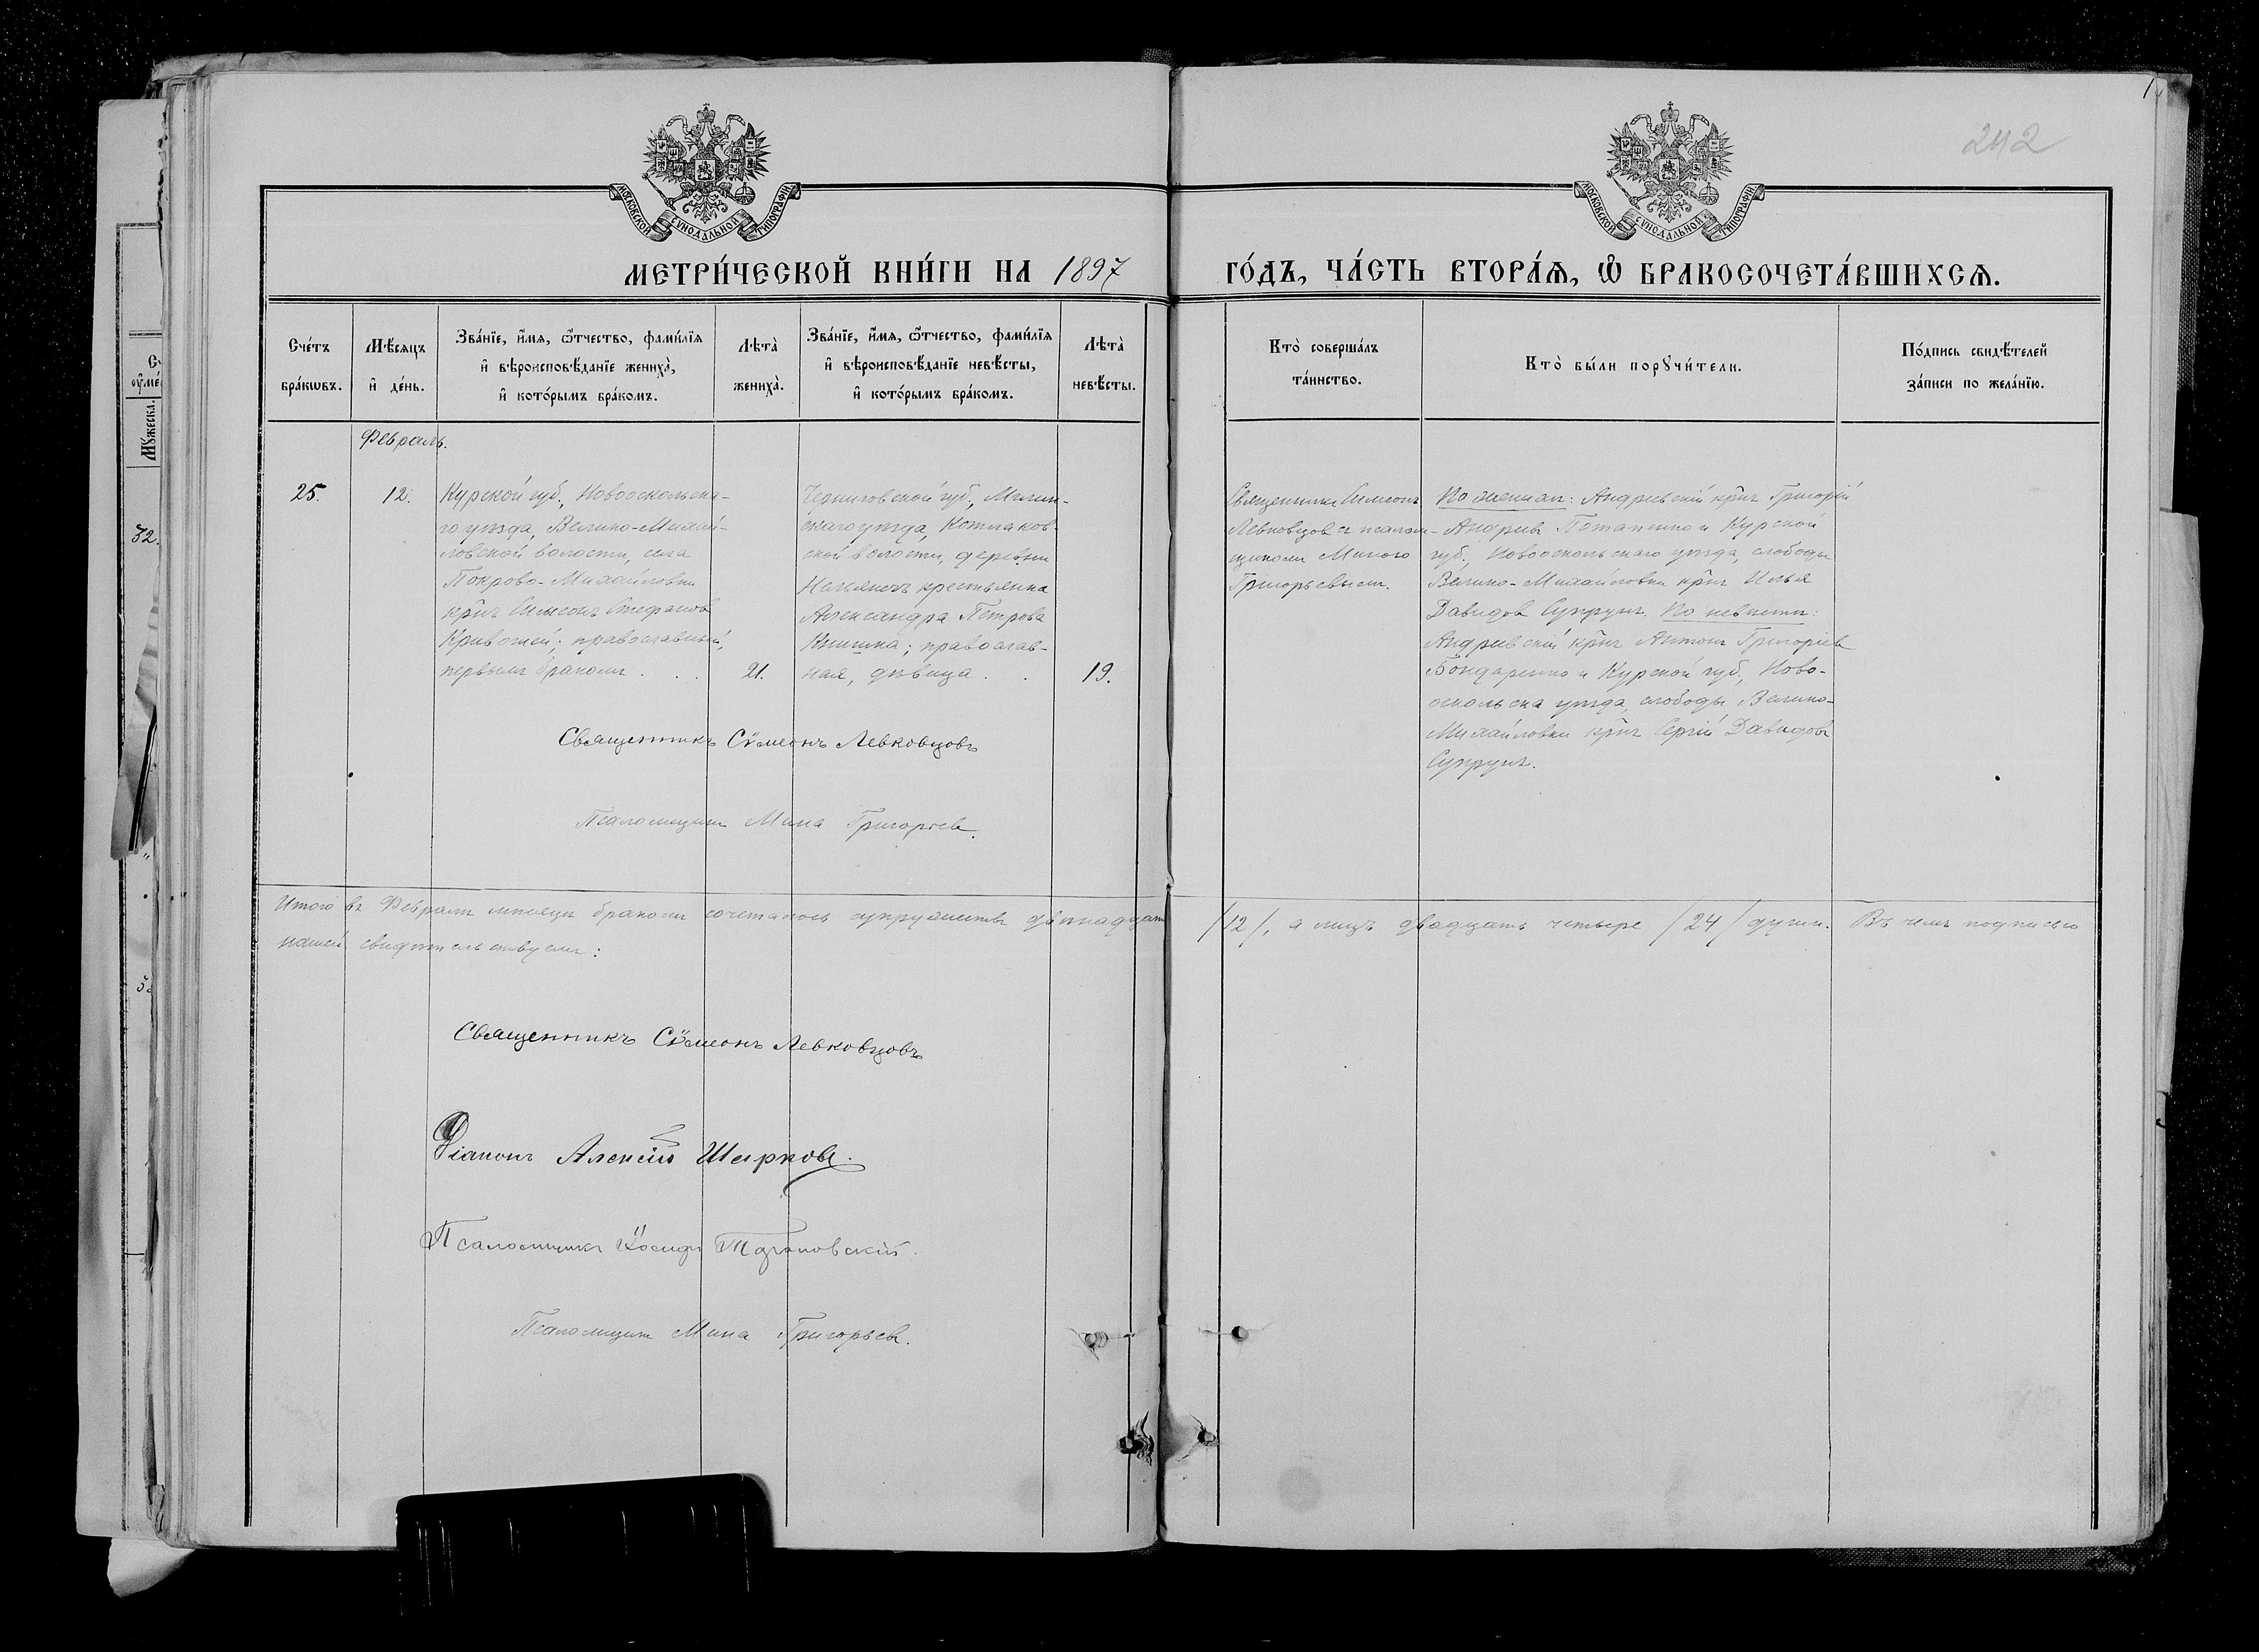 242
МОСКОВСКОЙ СѴНОДАЛЬНОЙ ТИПОГРАФІИ
МОСКОВСКОЙ СѴНОДАЛЬНОЙ ТИПОГРАФІИ
МЕТРИ́ЧЕСКОЙ КНИ́ГИ НА 1897 ГО́ДЪ, ЧА́СТЬ ВТОРА́Ѧ, Ѽ БРАКОСОЧЕТА́ВШИХСѦ.
Сче́тъ бра́кѡвъ.
Мѣ́сяцъ и҆ де́нь.
Зва́нїе, и҆́мя, ѻ҆́тчество, фами́лїя
и҆ вѣроисповѣ́данїе жениха̀,
и҆ кото́рымъ бра́комъ.
Лѣта̀ жениха̀.
Зва́нїе, и҆́мя, ѻ҆́тчество, фами́лїя
и҆ вѣроисповѣ́данїе невѣ́сты,
и҆ кото́рымъ бра́комъ.
Лѣта̀ невѣ́сты.
Кто̀ соверша́лъ
та́инство.
Кто̀ бы́ли порꙋчи́тели.
По́дпись свидѣ́телей
за́писи по жела́нїю.
Февраль.
25.
12.
Курской губ., Новооскольска-
го уѣзда, Велико-Михай-
ловской волости, села
Покрово-Михайловки
кр̃нъ Симеонъ Стефановъ
Кривошей; православный,
первымъ бракомъ . . .
21.
Черниговской губ., Мглин-
скаго уѣзда,
ской волости, деревни
крестьянка
Александра Петрова
православ-
ная, дѣвица . .
19.
Священникъ Симеонъ
Левковцовъ съ псалом-
щикомъ Миною
Григорьевымъ.
По женихѣ: Андреевскій кр̃нъ Григорій
Андреевъ Потапенко и Курской
губ., Новооскольскаго уѣзда, слободы
Велико-Михайловки кр̃нъ Илья
Давидовъ Супрунъ. По невѣстѣ:
Андреевскій кр̃нъ Антонъ Григоріевъ
Бондаренко и Курской губ., Ново-
оскольска уѣзда, слободы Велико-
Михайловки кр̃нъ Сергій Давидовъ
Супрунъ.
Священникъ Сѵмеонъ Левковцовъ
Псаломщикъ Мина Григорьевъ.
Итого въ Февралѣ мѣсяцѣ бракомъ сочеталось супружествъ двѣнадцать /12/, а лицъ двадцать четыре /24/ души. Въ чемъ подписью
нашей свидѣтельствуемъ:
Священникъ Сѵмеонъ Левковцовъ
Діаконъ Алексій
Псаломщикъ Іосифъ
Псаломщикъ Мина Григорьевъ.
Мꙋ́жеска.
32.